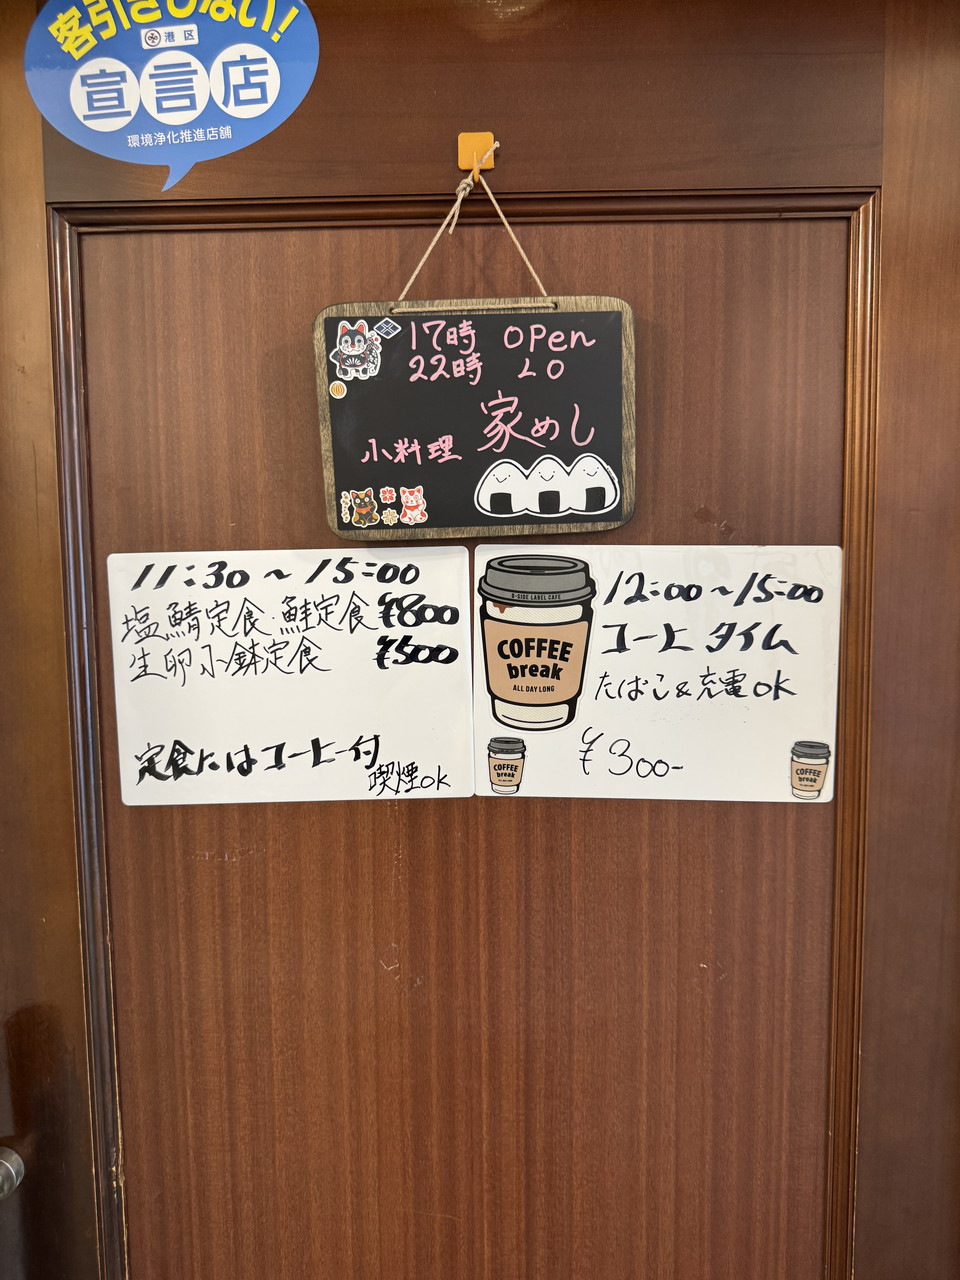 客引きしない!
港区
宣言店
環境浄化推進店舗
17時 OPen
22時 LO
小料理 家めし
11:30～15:00
塩鯖定食・鮭定食 ¥800
生卵小鉢定食 ¥500
定食にはコーヒー付
喫煙OK
B-SIDE LABEL CAFE
COFFEE
break
ALL DAY LONG
12:00～15:00
コーヒータイム
たばこ&充電OK
¥300-
COFFEE
break
COFFEE
break